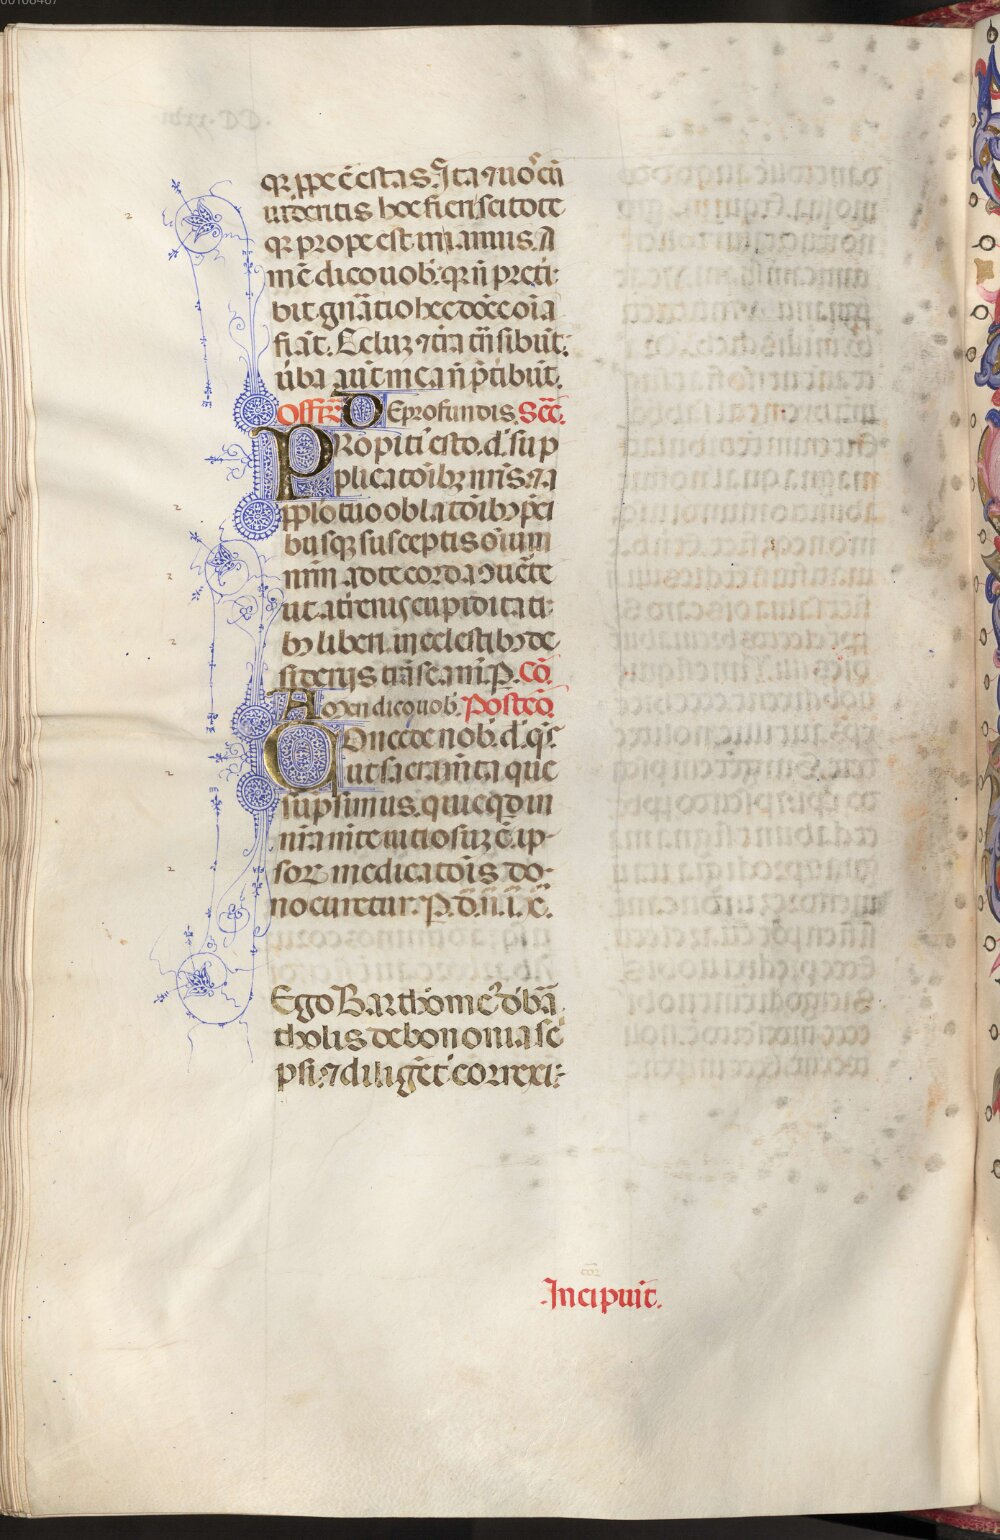 qꝛ ꝓpe ē estas. Ita ⁊ uos̉ cū
uideritis hoc fieri scitote
qꝛ prope est in ianuis. A
mē dico uob̓. qꝛ n̄ preti-
bit gn̄atio hec donec oīa
fiāt. Celuꝫ ⁊ t̄ra tn̄sibūt.
ūba aūt mea n̄ p̄tibūt.
Offr̄ꝫ De profundis. Sec̄c̄.
Propiti᾽ esto. d̓. sup
plicatōibꝫ nr̄is. ⁊ a
pp̄lo tuo oblatōibꝫ ꝑci
busqꝫ susceptis oīum
nr̄m ad te corda ↄuērte
ut a t̄renis cupiditati-
bꝫ liberi. in celestibꝫ de
siderijs trāseam᾽. P. Cō.
Amen dico uob̓. Postcō.
Concede nob̓. d̓. q̄s̓.
ut sacramn̄ta que
sūpsimus. quicqd̓ in
nr̄a mn̄te uitiosuꝫ ē. ip-
soꝝ medicatōis do-
no curetur. P. d̄. n̄. i. ē.
Ego Bartholome᾽ d̓ bā
tholis de bononia sc̓
psi. ⁊ diligēt̓ correxi:
.Incipiūt.